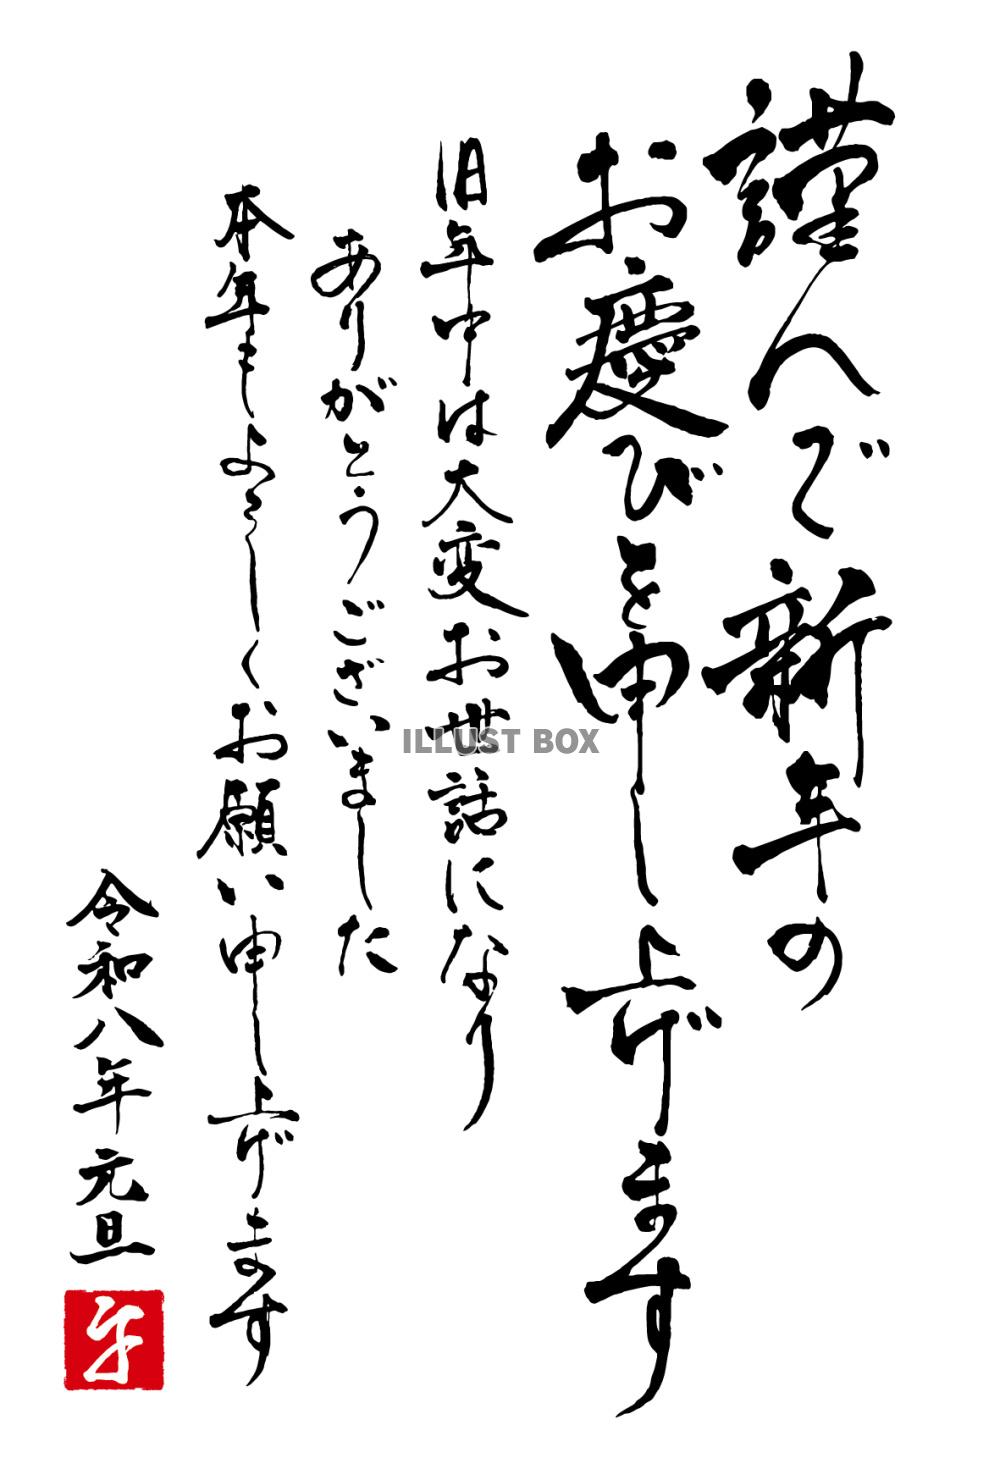 謹んで新年の
お慶びを申し上げます
旧年中は大変お世話になり
ありがとうございました
本年もよろしくお願い申し上げます
令和八年 元旦
午
ILLUST BOX